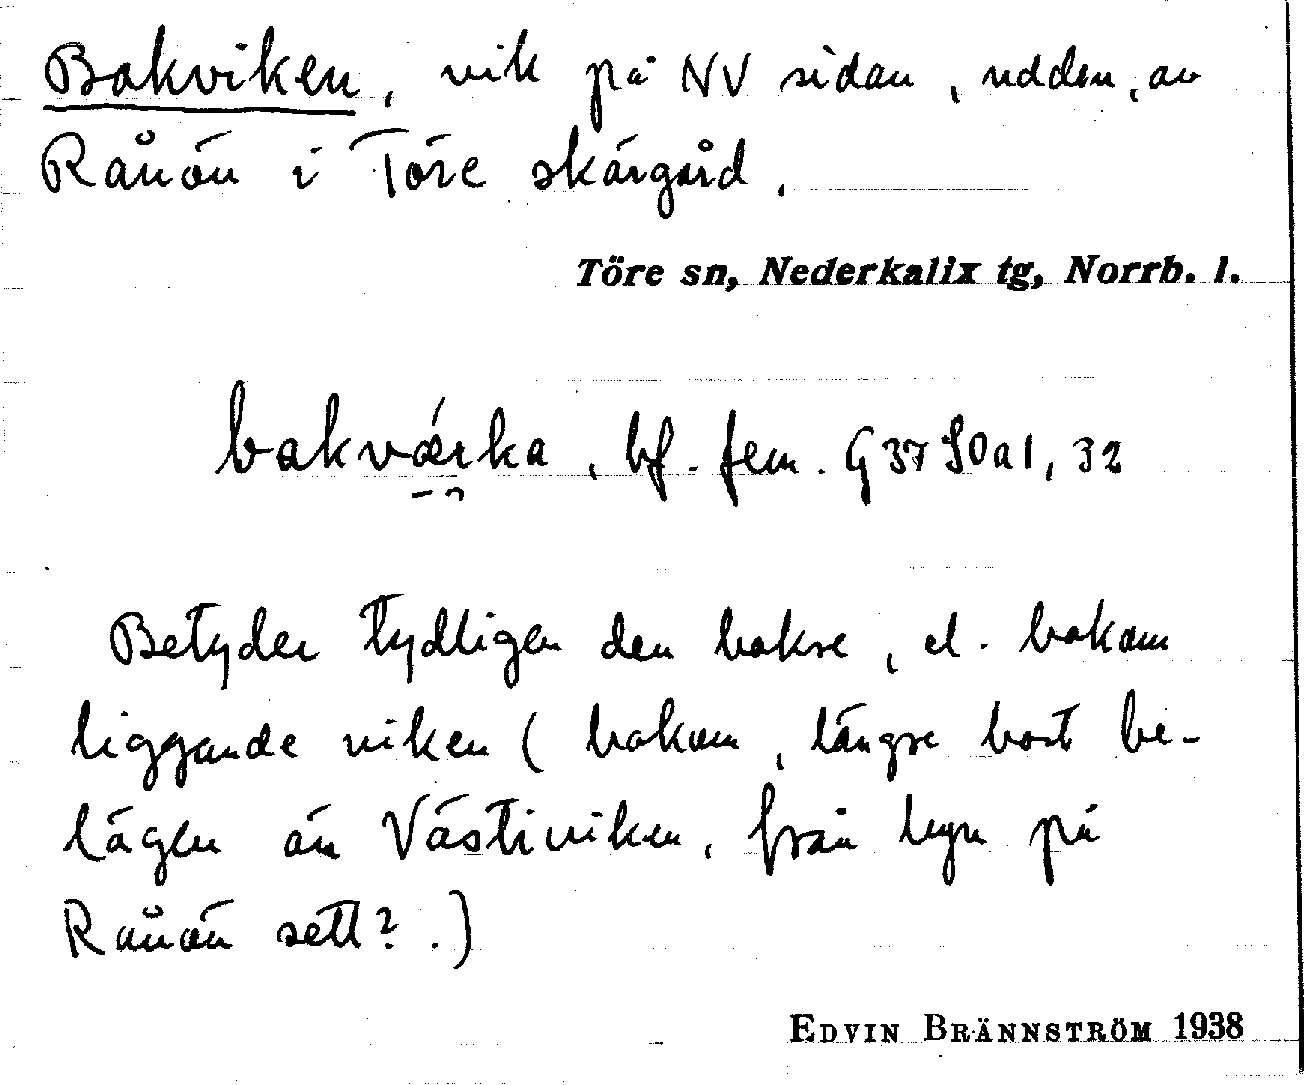 Bakviken, vik på NV sidan, udden, av
Rånön i Töre skärgård.
Töre sn, Nederkalix tg, Norrb. l.
bakvǽrka, bf. fem. G37 Dal, 32
Betyder tydligen den bakre, el. bakom
liggande viken (bakom, längre bort be-
lägen än Västiviken, från byn på
Rånön sett?.)
EDVIN BRÄNNSTRÖM 1938